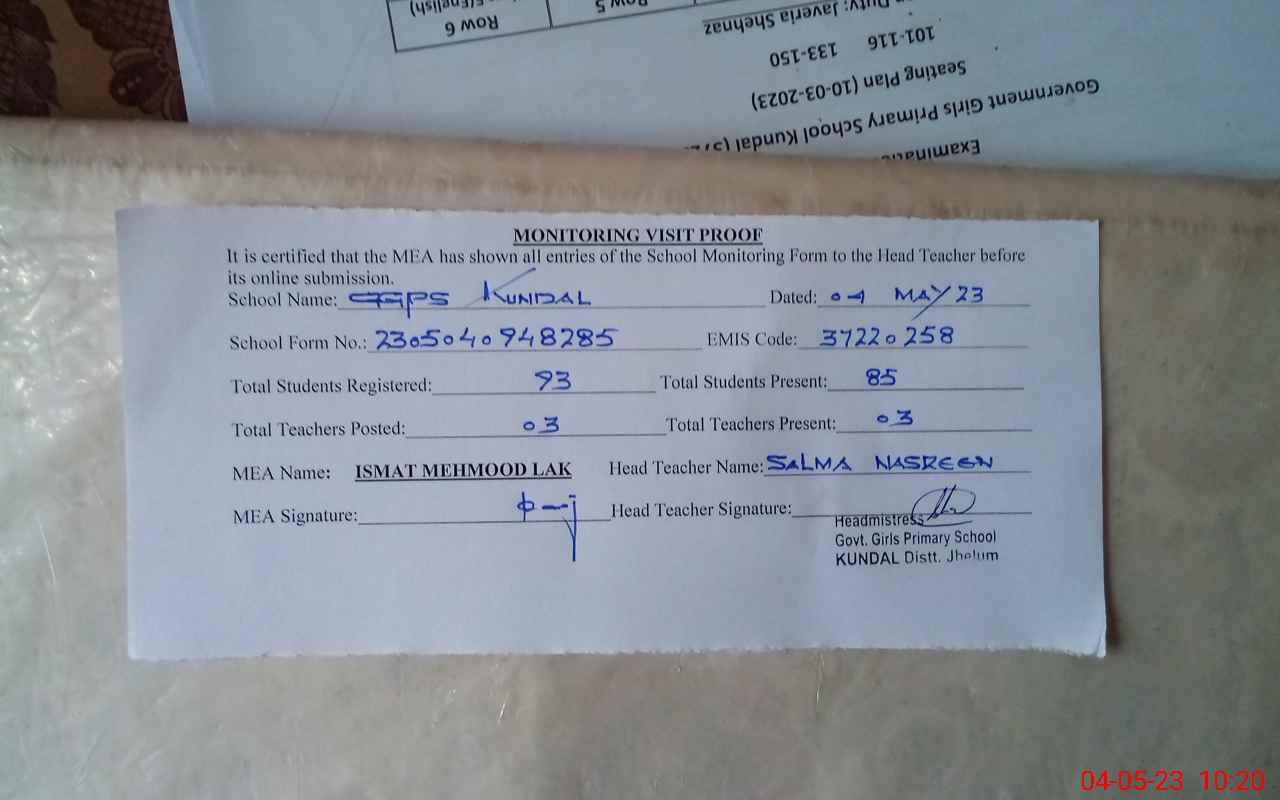 MONITORING VISIT PROOF
It is certified that the MEA has shown all entries of the School Monitoring Form to the Head Teacher before
its online submission.
School Name: GGPS KUNDAL Dated: 04 MAY 23
School Form No.: 2305040948285 EMIS Code: 37220258
Total Students Registered: 93 Total Students Present: 85
Total Teachers Posted: 03 Total Teachers Present: 03
MEA Name: ISMAT MEHMOOD LAK Head Teacher Name: SALMA NASREEN
MEA Signature: Head Teacher Signature:
Headmistress
Govt. Girls Primary School
KUNDAL Distt. Jhelum
Government Girls Primary School Kundal
Seating Plan (10-03-2023)
101-116 133-150
Duty: Javeria Shehnaz
Row 5
Row 6
(English)
04-05-23 10:20